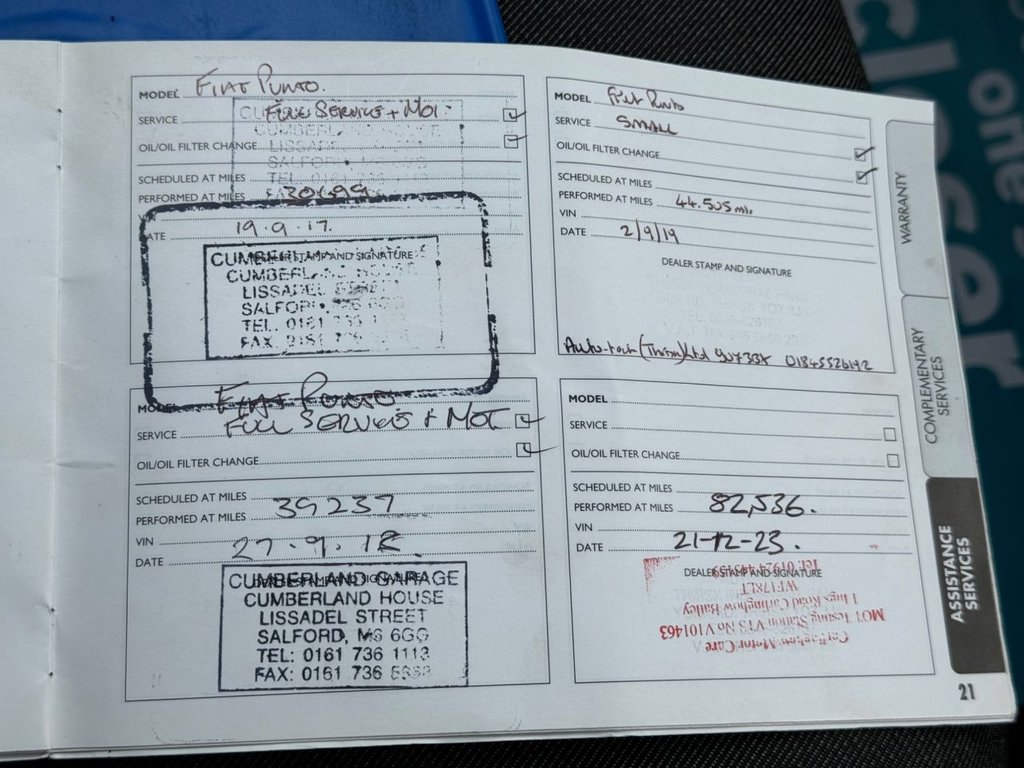 MODEL Fiat Punto.
SERVICE Full Service + MOT
OIL/OIL FILTER CHANGE
SCHEDULED AT MILES
PERFORMED AT MILES 30699
DATE 19.9.17.
STAMP AND SIGNATURE
CUMBERLAND HOUSE
LISSADEL STREET
SALFORD, M6 6GG
TEL. 0161 736
FAX 0161 736
MODEL Fiat Punto
SERVICE SMALL
OIL/OIL FILTER CHANGE
SCHEDULED AT MILES
PERFORMED AT MILES 44.505 mi.
VIN
DATE 2/9/19
DEALER STAMP AND SIGNATURE
Auto-tech (Thirsk) Ltd YO7 3BX 01845526192
MODEL Fiat Punto
SERVICE Full Service + MOT
OIL/OIL FILTER CHANGE
SCHEDULED AT MILES
PERFORMED AT MILES 39237
VIN
DATE 27.9.18.
STAMP AND SIGNATURE
CUMBERLAND GARAGE
CUMBERLAND HOUSE
LISSADEL STREET
SALFORD, M6 6GG
TEL: 0161 736 1113
FAX: 0161 736
MODEL
SERVICE
OIL/OIL FILTER CHANGE
SCHEDULED AT MILES
PERFORMED AT MILES 82,536.
VIN
DATE 21-12-23.
DEALER STAMP AND SIGNATURE
Motor Care
MOT Testing Station VTS No V101463
1 Ings Road Carlinghow Batley
WF17 8LT
Tel: 01924
WARRANTY
COMPLEMENTARY SERVICES
ASSISTANCE SERVICES
21
one's
closer